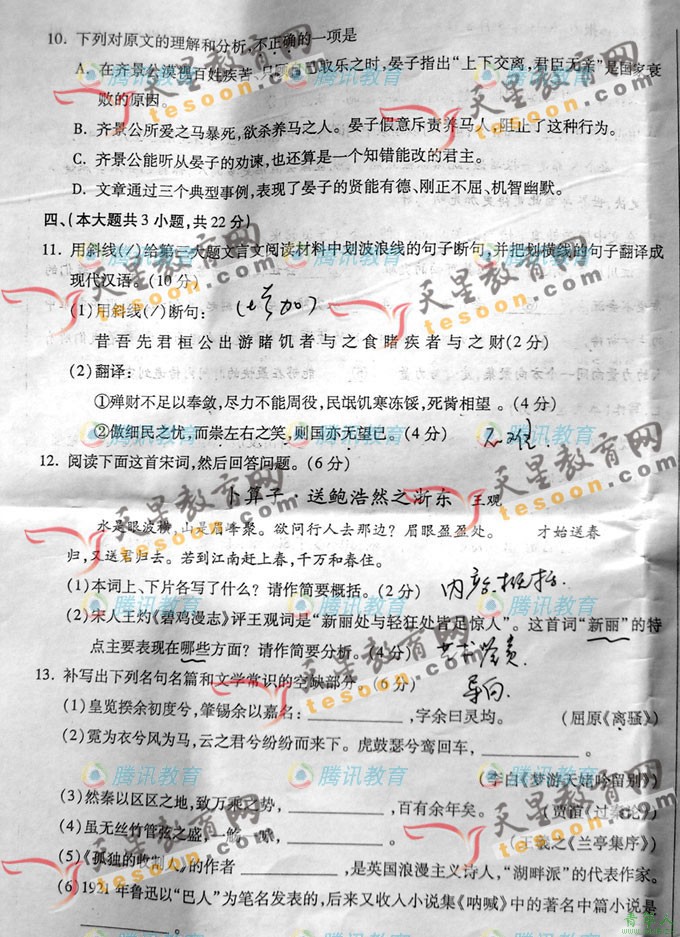 10. 下列对原文的理解和分析,不正确的一项是
A. 在齐景公漠视百姓疾苦、只顾自己取乐之时,晏子指出“上下交离,君臣无亲”是国家衰
败的原因。
B. 齐景公所爱之马暴死,欲杀养马之人。晏子假意斥责养马人,阻止了这种行为。
C. 齐景公能听从晏子的劝谏,也还算是一个知错能改的君主。
D. 文章通过三个典型事例,表现了晏子的贤能有德、刚正不屈、机智幽默。
四、(本大题共3小题,共22分)
11. 用斜线(/)给第三大题文言文阅读材料中划波浪线的句子断句,并把划横线的句子翻译成
现代汉语。(10分)
(1)用斜线(/)断句: (增加)
昔吾先君桓公出游睹饥者与之食睹疾者与之财(2分)
(2)翻译:
①殚财不足以奉敛,尽力不能周役,民氓饥寒冻馁,死胔相望。(4分)
②傲细民之忧,而崇左右之笑,则国亦无望已。(4分)
12. 阅读下面这首宋词,然后回答问题。(6分)
卜算子·送鲍浩然之浙东 王观
水是眼波横,山是眉峰聚。欲问行人去那边?眉眼盈盈处。 才始送春
归,又送君归去。若到江南赶上春,千万和春住。
(1)本词上、下片各写了什么?请作简要概括。(2分) 内容概括.
(2)宋人王灼《碧鸡漫志》评王观词是“新丽处与轻狂处皆足惊人”。这首词“新丽”的特
点主要表现在哪些方面?请作简要分析。(4分)
导向.
13. 补写出下列名句名篇和文学常识的空缺部分。(6分)
(1)皇览揆余初度兮,肇锡余以嘉名:________,字余曰灵均。 (屈原《离骚》)
(2)霓为衣兮风为马,云之君兮纷纷而来下。虎鼓瑟兮鸾回车,________。
(李白《梦游天姥吟留别》)
(3)然秦以区区之地,致万乘之势,________,百有余年矣。 (贾谊《过秦论》)
(4)虽无丝竹管弦之盛,一觞一咏,________。 (王羲之《兰亭集序》)
(5)《孤独的收割人》的作者________,是英国浪漫主义诗人,“湖畔派”的代表作家。
(6)1921年鲁迅以“巴人”为笔名发表的,后来又收入小说集《呐喊》中的著名中篇小说是
________。
天星教育网
tesoon.com
腾讯教育